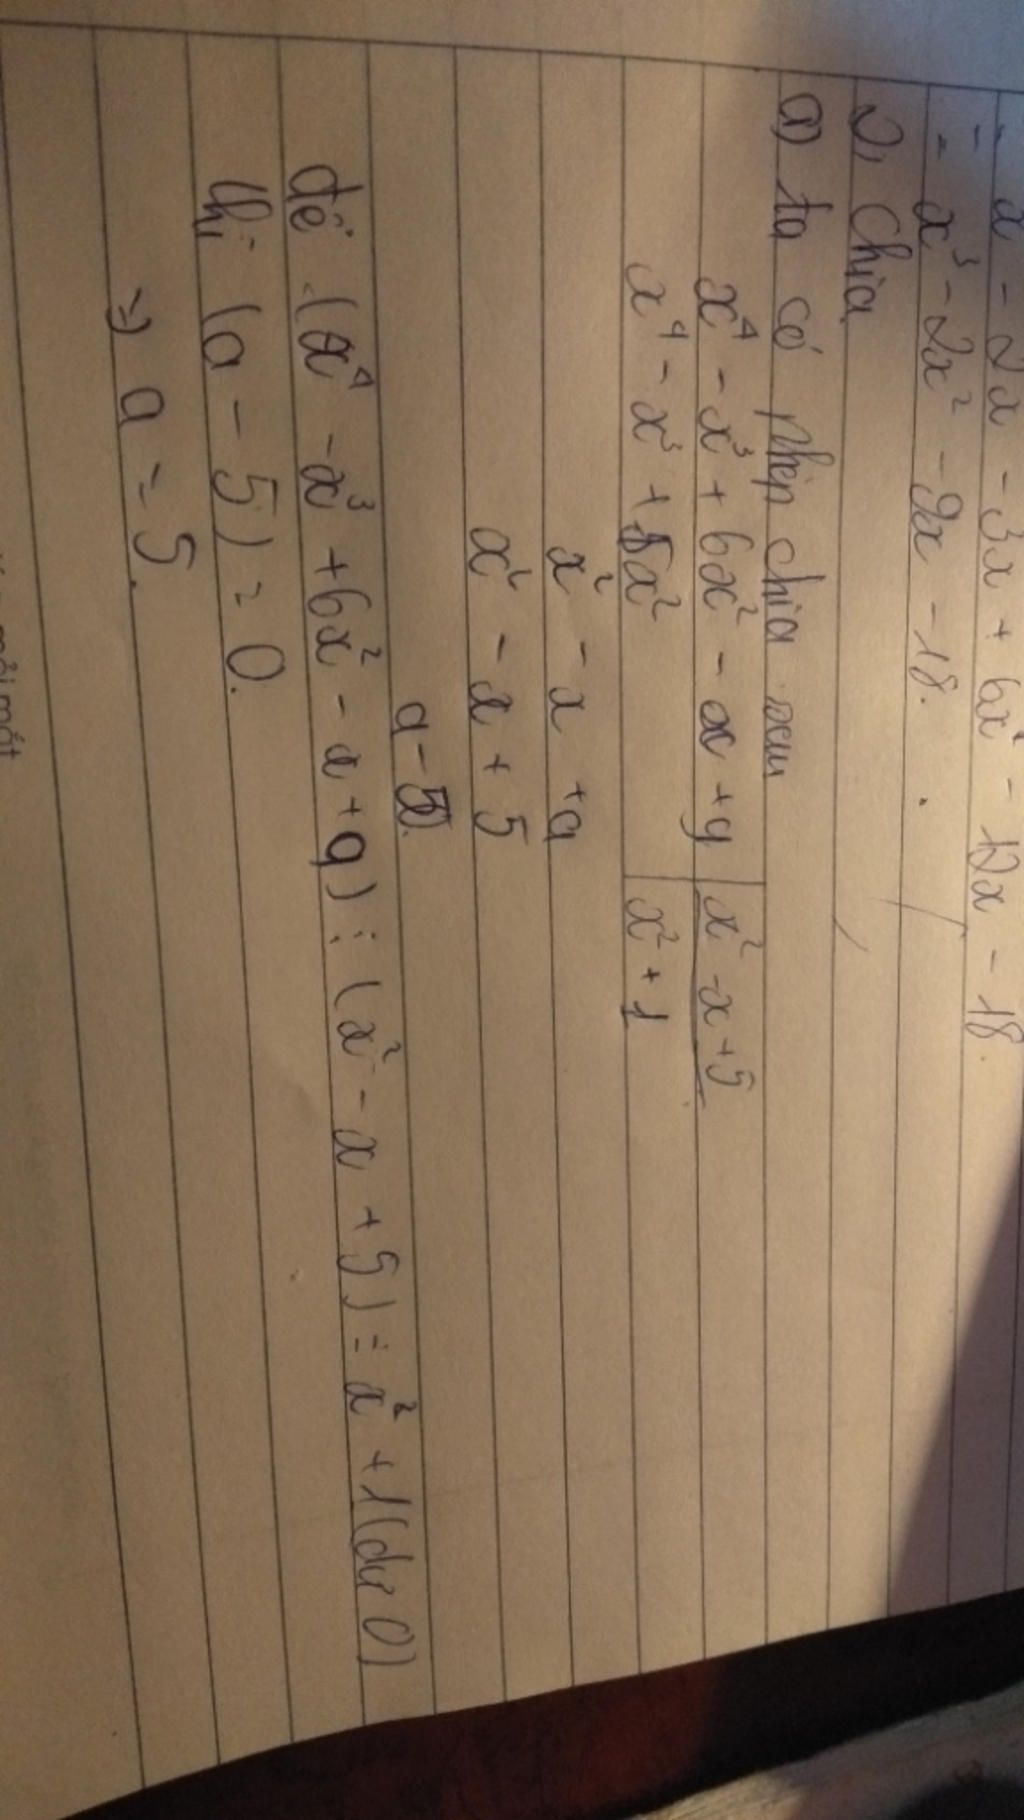 = x³ - 2x² - 3x + 6x² - 12x - 18.
= x³ - 2x² - 9x - 18.
2, chia
a) ta có phép chia sau
x⁴ - x³ + 6x² - x + a | x² - x + 5
x⁴ - x³ + 5x² | x² + 1
x² - x + a
x² - x + 5
a - 5.
để (x⁴ - x³ + 6x² - x + a) : (x² - x + 5) = x² + 1 (dư 0)
thì (a - 5) = 0.
=> a = 5.
mỏi mắt